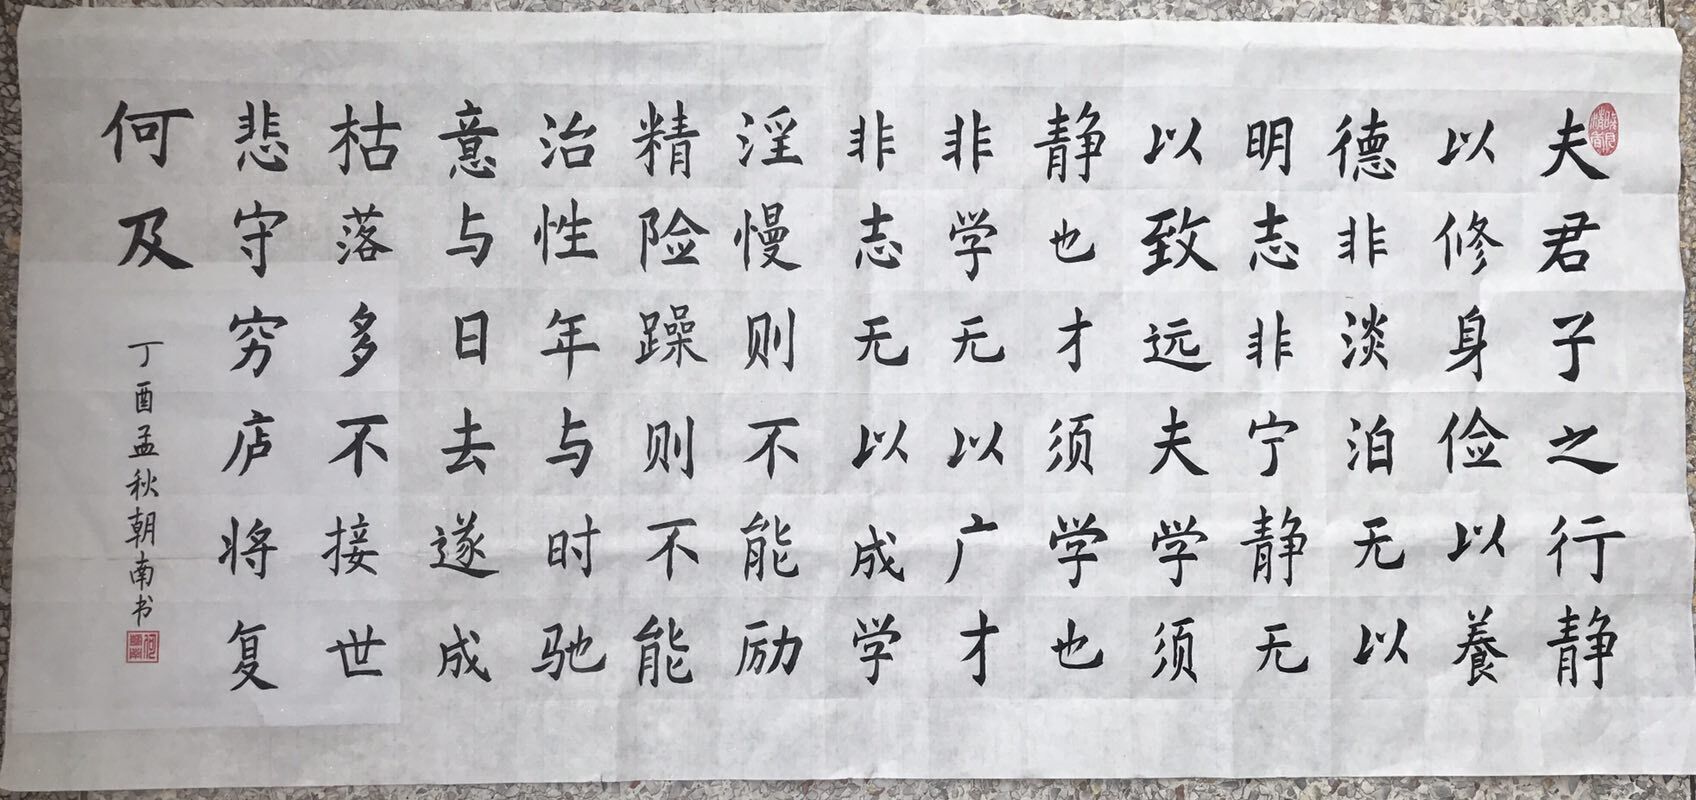 夫君子之行静
以修身俭以養
德非淡泊无以
明志非宁静无
以致远夫学须
静也才须学也
非学无以广才
非志无以成学
淫慢则不能励
精险躁则不能
治性年与时驰
意与日去遂成
枯落多不接世
悲守穷庐将复
何及
丁酉孟秋朝南书